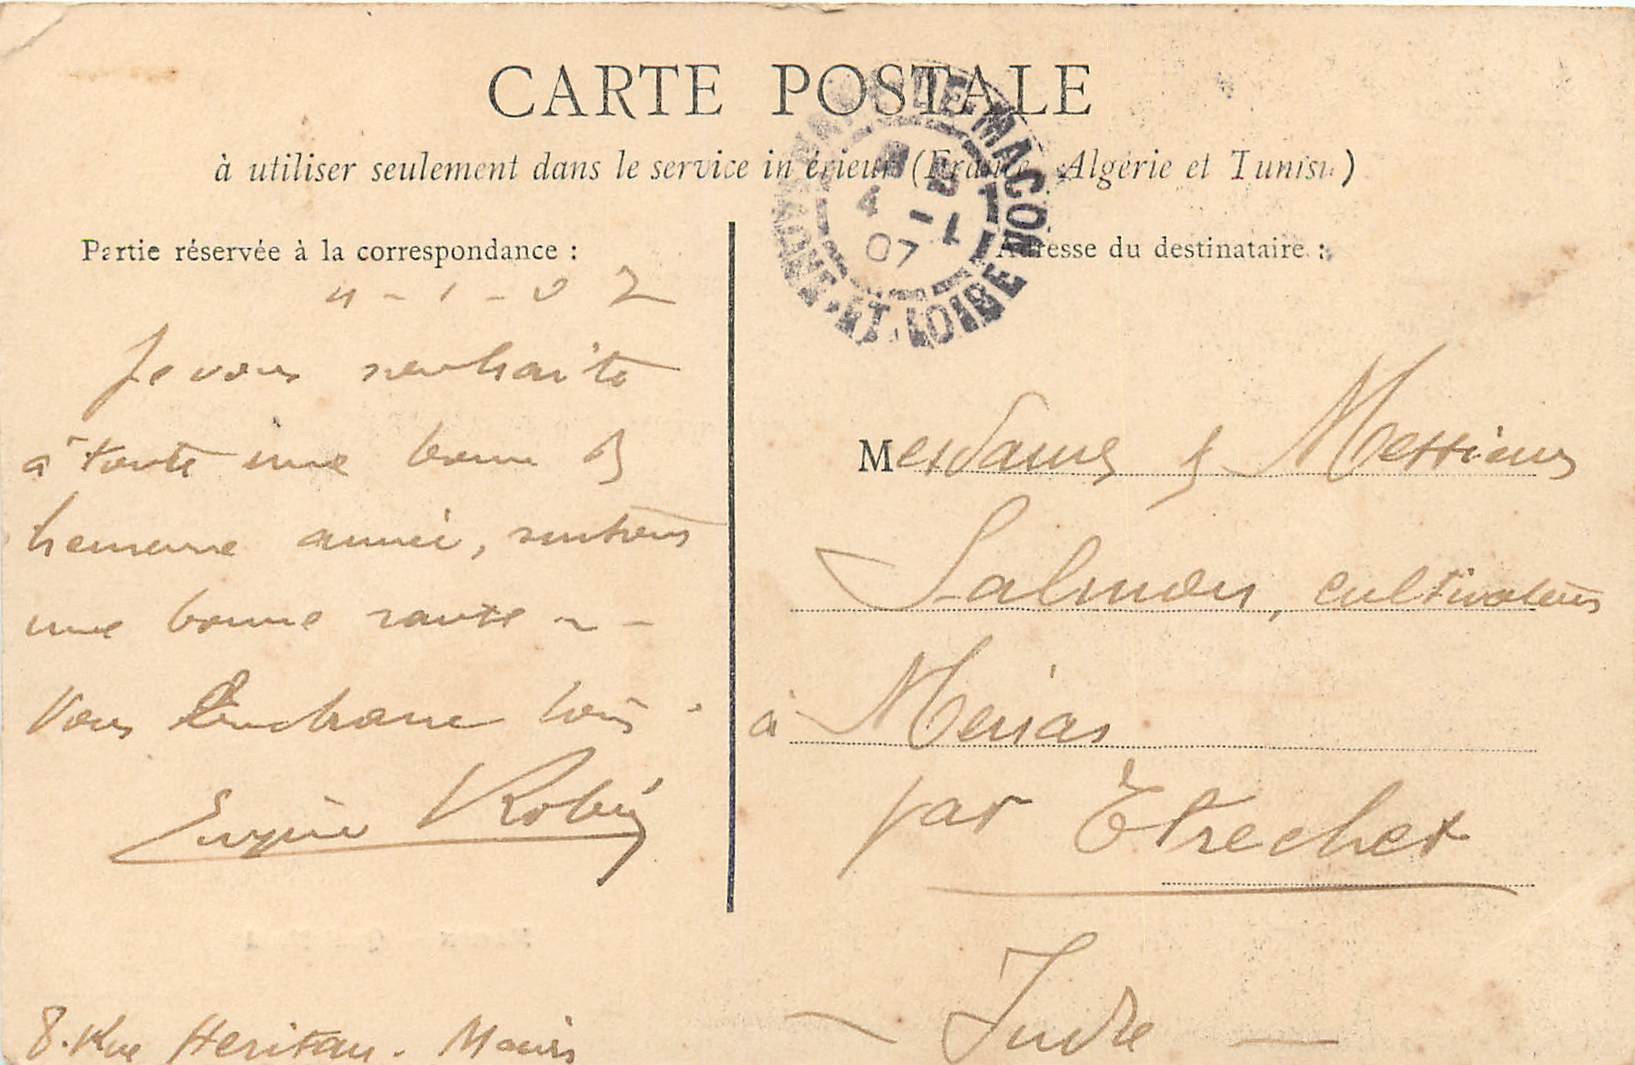 CARTE POSTALE
à utiliser seulement dans le service intérieur (France, Algérie et Tunisie)
Partie réservée à la correspondance :
4 - 1 - 07
Je vous souhaite
à toute une bonne &
heureuse année, surtout
une bonne santé ~ -
Vous tous .
Eugène Robin
8. Rue Héritan. Mâcon
LE-MACON
4 -1
07
SAONE-ET-LOIRE
Adresse du destinataire :
Mesdames & Messieurs
Salmon, cultivateurs
à
par Etrechet
Indre